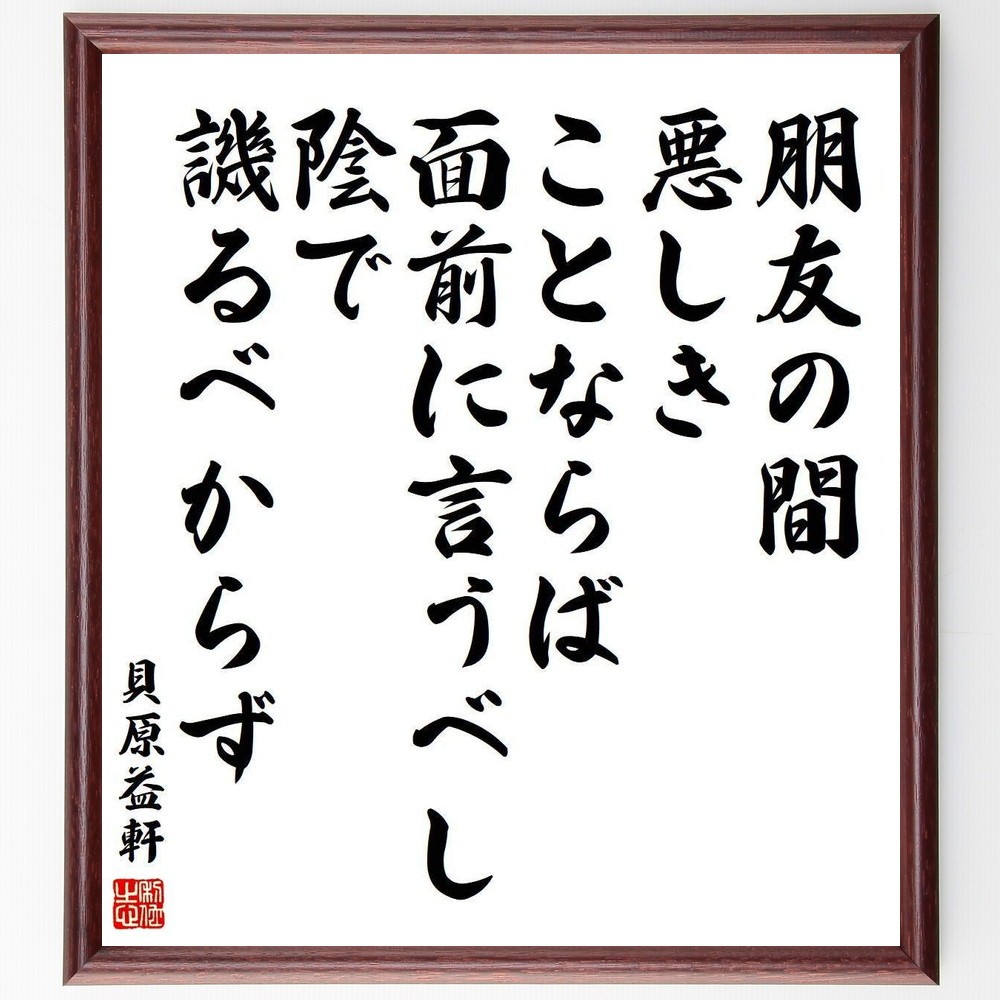 朋友の間
悪しき
ことならば
面前に言うべし
陰で
譏るべからず
貝原益軒